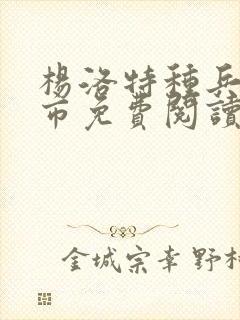 楊洛特種兵
市免費閱讀
金城宗幸野村